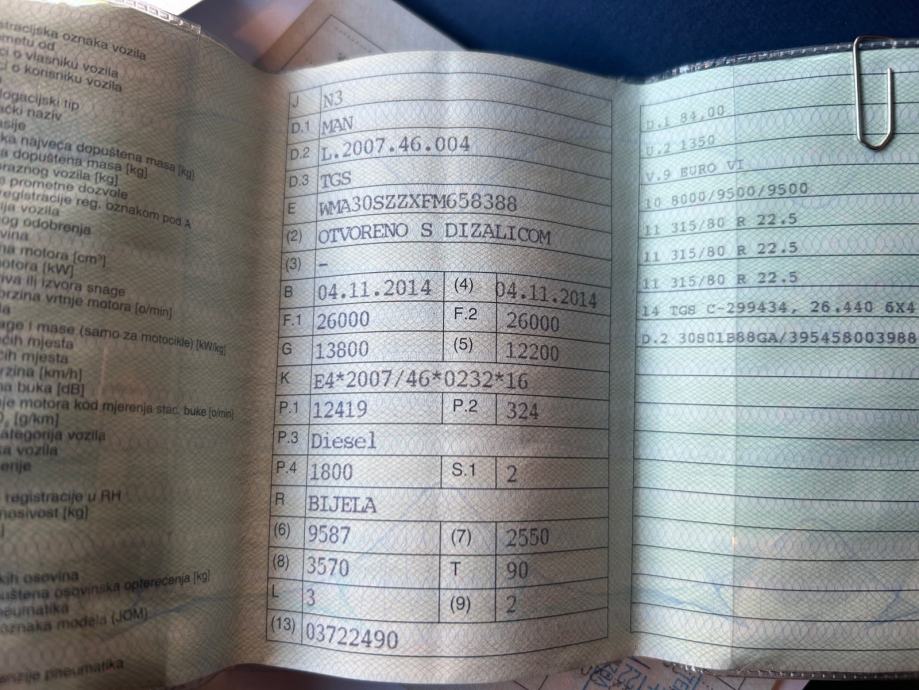 oznaka vozila
o vlasniku vozila
o korisniku vozila
tip
naziv
najveća dopuštena masa [kg]
dopuštena masa [kg]
vozila [kg]
prometne dozvole
registracije reg. oznakom pod A
vozila
odobrenja
motora [cm³]
[kW]
ili izvora snage
vrtnje motora [o/min]
i mase (samo za motocikle) [kW/kg]
mjesta
mjesta
[km/h]
buka [dB]
motora kod mjerenja stac. buke [o/min]
[g/km]
vozila
vozila
registracije u RH
[kg]
osovina
osovinska opterećenja [kg]
oznaka modela (JOM)
pneumatika
J N3
D.1 MAN
D.2 L.2007.46.004
D.3 TGS
E WMA30SZZXFM658388
(2) OTVORENO S DIZALICOM
(3) –
B 04.11.2014 (4) 04.11.2014
F.1 26000 F.2 26000
G 13800 (5) 12200
K E4*2007/46*0232*16
P.1 12419 P.2 324
P.3 Diesel
P.4 1800 S.1 2
R BIJELA
(6) 9587 (7) 2550
(8) 3570 T 90
L 3 (9) 2
(13) 03722490
U.2 1350
V.9 EURO VI
10 8000/9500/9500
11 315/80 R 22.5
11 315/80 R 22.5
11 315/80 R 22.5
14 TGS C-299434, 26.440 6X4
D.2 30801B88GA/395458003988